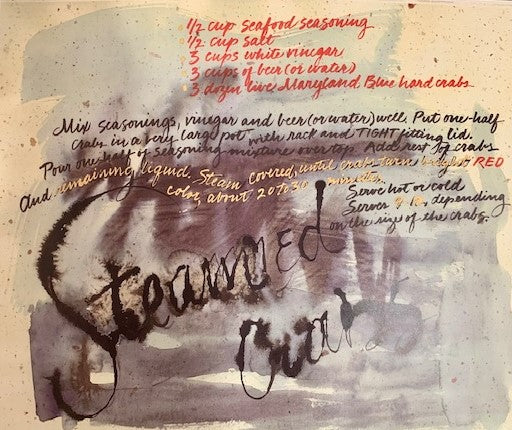 1/2 cup Seafood seasoning
1/2 cup salt
3 cups white vinegar
3 cups of beer (or water)
3 dozen live Maryland Blue hard crabs
Mix seasonings, vinegar and beer (or water) well. Put one-half
crabs in a very large pot with rack and TIGHT fitting lid.
Pour one-half of seasoning mixture over top. Add rest of crabs
And remaining liquid. Steam covered, until crabs turn bright RED
color, about 20 to 30 minutes.
Serve hot or cold
Serves depending
on the size of the crabs.
Steamed
Crabs